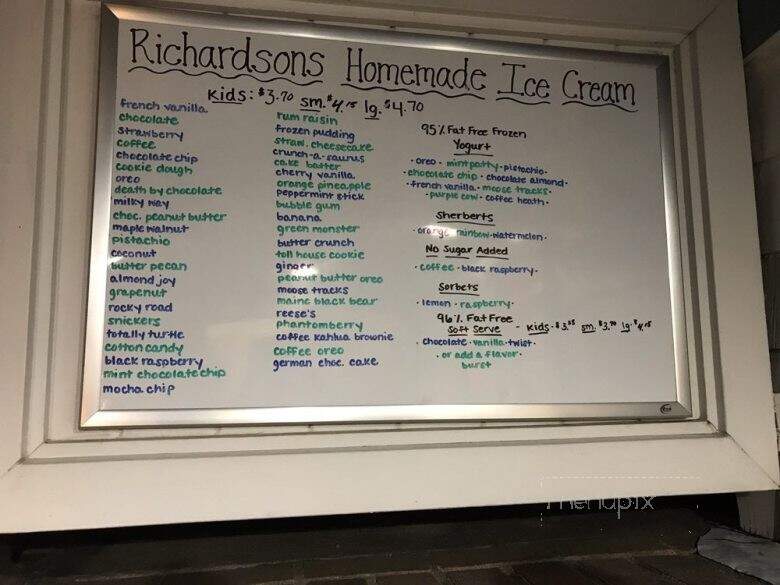 Richardsons Homemade Ice Cream
Kids: $3.70 sm. $4.15 lg. $4.70
french vanilla
chocolate
strawberry
coffee
chocolate chip
cookie dough
oreo
death by chocolate
milky way
choc. peanut butter
maple walnut
pistachio
coconut
butter pecan
almond joy
grapenut
rocky road
snickers
totally turtle
cotton candy
black raspberry
mint chocolate chip
mocha chip
rum raisin
frozen pudding
straw. cheesecake
crunch-a-saurus
cake batter
cherry vanilla
orange pineapple
peppermint stick
bubble gum
banana
green monster
butter crunch
toll house cookie
ginger
peanut butter oreo
moose tracks
maine black bear
reese's
phantomberry
coffee kahlua brownie
coffee oreo
german choc. cake
95% Fat Free Frozen
Yogurt
• oreo • mint patty • pistachio •
• chocolate chip • chocolate almond •
• french vanilla • moose tracks •
• purple cow • coffee heath •
Sherberts
• orange rainbow • watermelon •
No Sugar Added
• coffee • black raspberry •
Sorbets
• lemon • raspberry •
96% Fat Free
Soft Serve - Kids • sm. lg.
• chocolate • vanilla • twist •
• or add a flavor •
burst
menupix